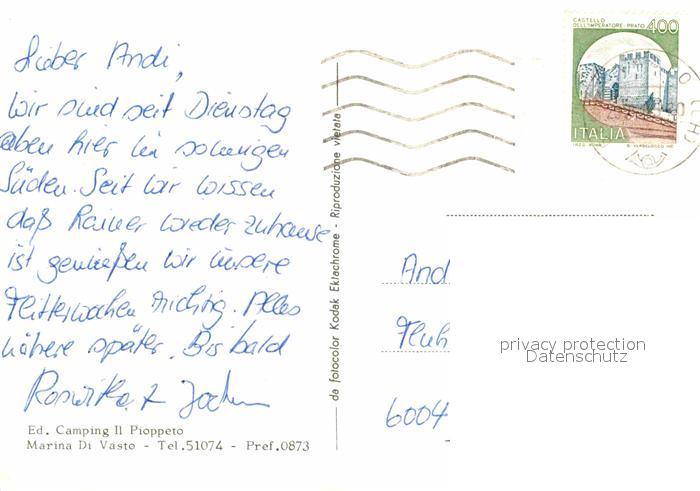 Lieber Andi,
wir sind seit Dienstag
eben hier im sonnigen
Süden. Seit wir wissen
daß Rainer wieder zuhause
ist genießen wir unsere
Flitterwochen richtig. Alles
nähere später. Bis bald
Roswitha & Jochen
Ed. Camping Il Pioppeto
Marina Di Vasto - Tel.51074 - Pref.0873
da fotocolor Kodak Ektachrome - Riproduzione vietata
CASTELLO
DELL'IMPERATORE-PRATO 400
ITALIA
And
Fluh
6004
privacy protection
Datenschutz